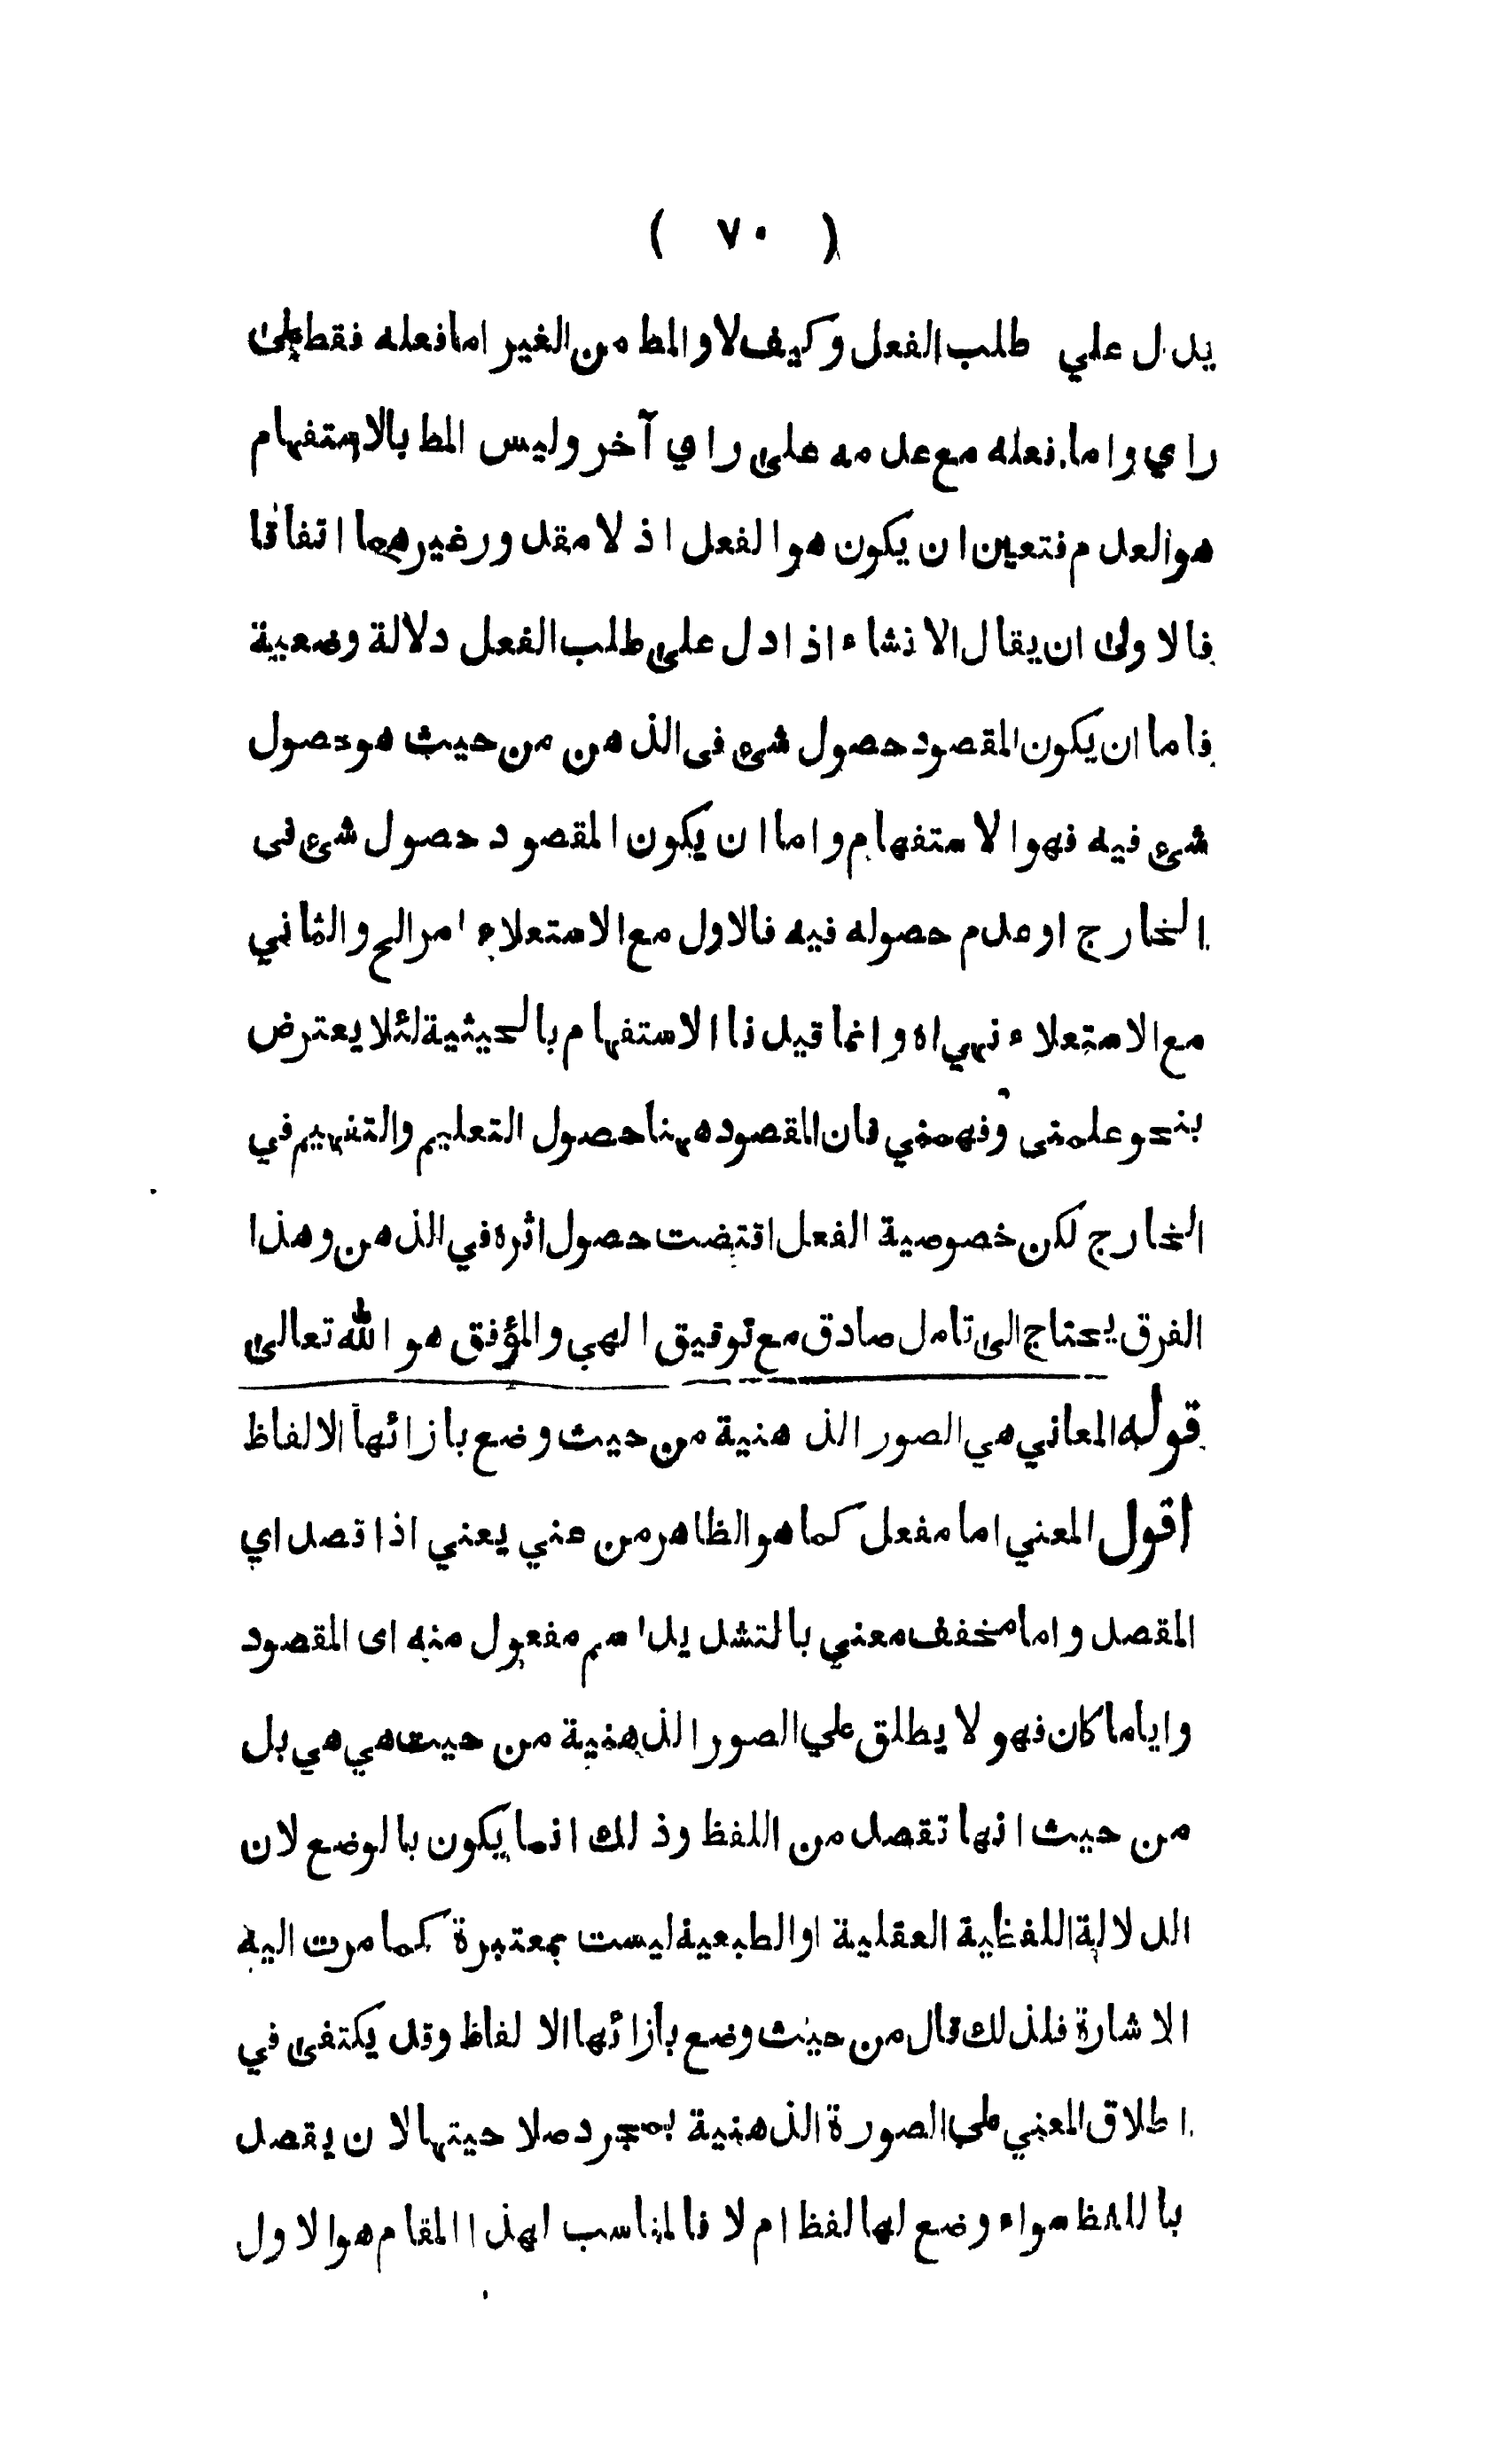 ( ٧٠ )
يدل علي طلب الفعل وكيف لا والمط من الغير اما فعله فقط على
راي واما فعله مع عدمه على راي آخر وليس المط بالاستفهام
هو العدم فتعين ان يكون هو الفعل اذ لا مقدور غيرهما اتفاقا
فالاولى ان يقال الانشاء اذا دل على طلب الفعل دلالة وضعية
فاما ان يكون المقصود حصول شئ فى الذهن من حيث هو حصول
شئ فيه فهو الاستفهام واما ان يكون المقصود حصول شئ فى
الخارج او عدم حصوله فيه فالاول مع الاستعلاء امر الح والثاني
مع الاستعلاء نهي اه وانما قيدنا الاستفهام بالحيثية لئلا يعترض
بنحو علمنى وفهمني فان المقصود ههنا حصول التعليم والتفهيم في
الخارج لكن خصوصية الفعل اقتضت حصول اثره في الذهن وهذا
الفرق يحتاج الى تامل صادق مع توفيق الهي والمؤفق هو الله تعالى
قوله المعاني هي الصور الذهنية من حيث وضع بازائها الالفاظ
اقول المعني اما مفعل كما هو الظاهر من عني يعني اذا قصد اي
المقصد واما مخفف معني بالتشديد اسم مفعول منه اى المقصود
واياما كان فهو لا يطلق علي الصور الذهنية من حيث هي هي بل
من حيث انها تقصد من اللفظ وذلك انما يكون بالوضع لان
الدلالة اللفظية العقلية او الطبعية ليست بمعتبرة كما مرت اليه
الاشارة فلذلك قال من حيث وضع بازائها الالفاظ وقد يكتفى في
اطلاق المعني على الصورة الذهنية بمجرد صلاحيتها لان يقصد
باللفظ سواء وضع لها لفظ ام لا فالمناسب لهذا المقام هو الاول